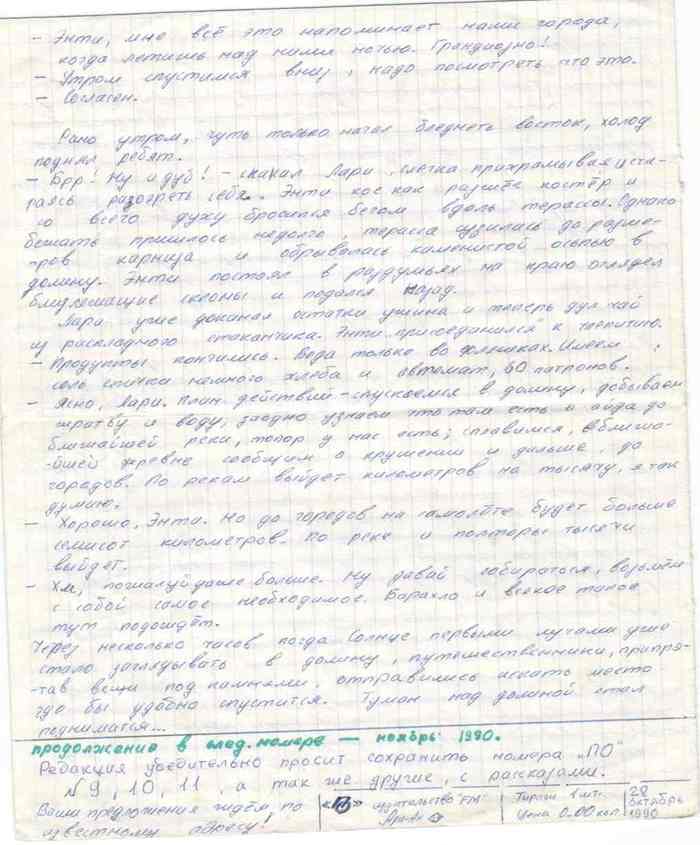 - Энти, мне всё это напоминает наши города,
когда летишь над ними ночью. Грандиозно!
- Утром спустимся вниз, надо посмотреть что это.
- Согласен.
Рано утром, чуть только начал бледнеть восток, холод
поднял ребят.
- Брр! Ну и дуб! - сказал Лари, слегка прихрамывая и ста-
раясь разогреть себя. Энти кое как разжёг костёр и
со всего духу бросился бегом вдоль терассы. Однако
бежать пришлось недолго, терасса сузилась до разме-
-ров карниза и обрывалась каменистой осыпью в
долину. Энти постоял в раздумьях на краю оглядел
близлежащие склоны и подался назад.
Лари уже доканал остатки ужина и теперь дул чай
из раскладного стаканчика. Энти присоединился к чаепитию.
- Продукты кончились. Вода только во фляжках. Имеем:
соль спички немного хлеба и автомат, 60 патронов.
- Ясно, Лари. План действий - спускаемся в долину, добываем
жратву и воду, заодно узнаем что там есть и айда до
ближайшей реки, топор у нас есть; сплавимся, в ближа-
-йшей деревне сообщим о крушении и дальше, до
городов. По рекам выйдет километров на тысячу, я так
думаю.
- Хорошо, Энти. Но до городов на самолёте будет больше
семисот километров. По реке и полторы тысячи
выйдет.
- Хм, пожалуй даже больше. Ну давай собираться, возьмём
с собой самое необходимое. Барахло и всякое такое
тут подождёт.
Через несколько часов когда Солнце первыми лучами уже
стало заглядывать в долину, путешественники, припря-
-тав вещи под камнями, отправились искать место
где бы удобно спустится. Туман над долиной стал
подниматся...
продолжение в след. номере — ноябрь 1990.
Редакция убедительно просит сохранить номера "ПО"
N 9, 10, 11, а так же другие, с рассказами.
Ваши предложения ждём, по
известному адресу!
«ПО» издательство "FM"
Тираж 1 шт.
Цена 0.00 коп.
28
октябрь
1990